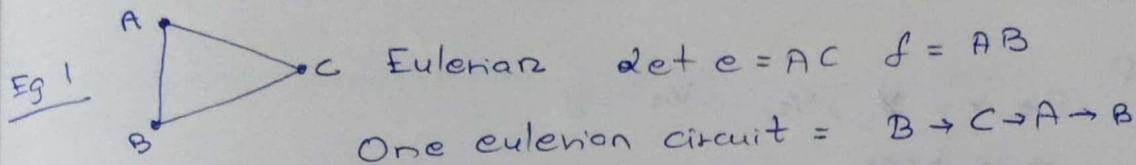 A
Eg 1
C Eulerian Let e = AC f = AB
B
One eulerion circuit = B → C → A → B